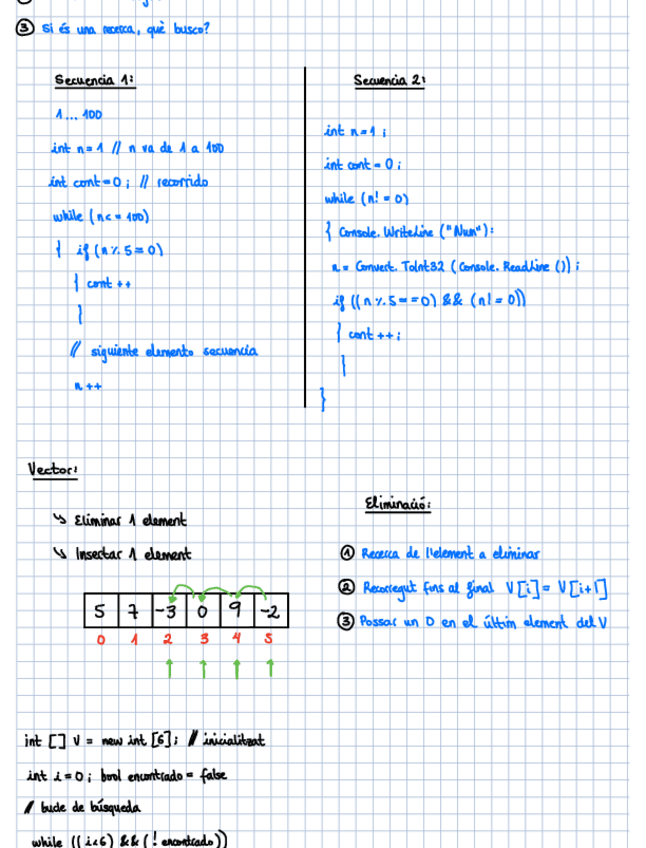 ③ Si és una recerca, què busco?
Secuencia 1:
1 ... 100
int n = 1 // n va de 1 a 100
int cont = 0 ; // recorrido
while (n <= 100)
{ if (n % 5 = 0)
{ cont ++
}
// siguiente elemento secuencia
n ++
Secuencia 2:
int n = 1 ;
int cont = 0 ;
while (n! = 0)
{ Console. WriteLine ("Num") :
n = Convert. ToInt32 ( Console. ReadLine ()) ;
if ((n % 5 == 0) && (n! = 0))
{ cont ++ ;
}
}
Vector:
↳ Eliminar 1 element
↳ Insertar 1 element
5 7 -3 0 9 -2
0 1 2 3 4 5
Eliminació:
① Recerca de l'element a eliminar
② Recorregut fins al final V[i] = V[i+1]
③ Possar un 0 en el últim element del V
int [] V = new int [6] ; // inicialitzat
int i = 0 ; bool encontrado = false
// bucle de búsqueda
while ((i<6) && (! encontrado))